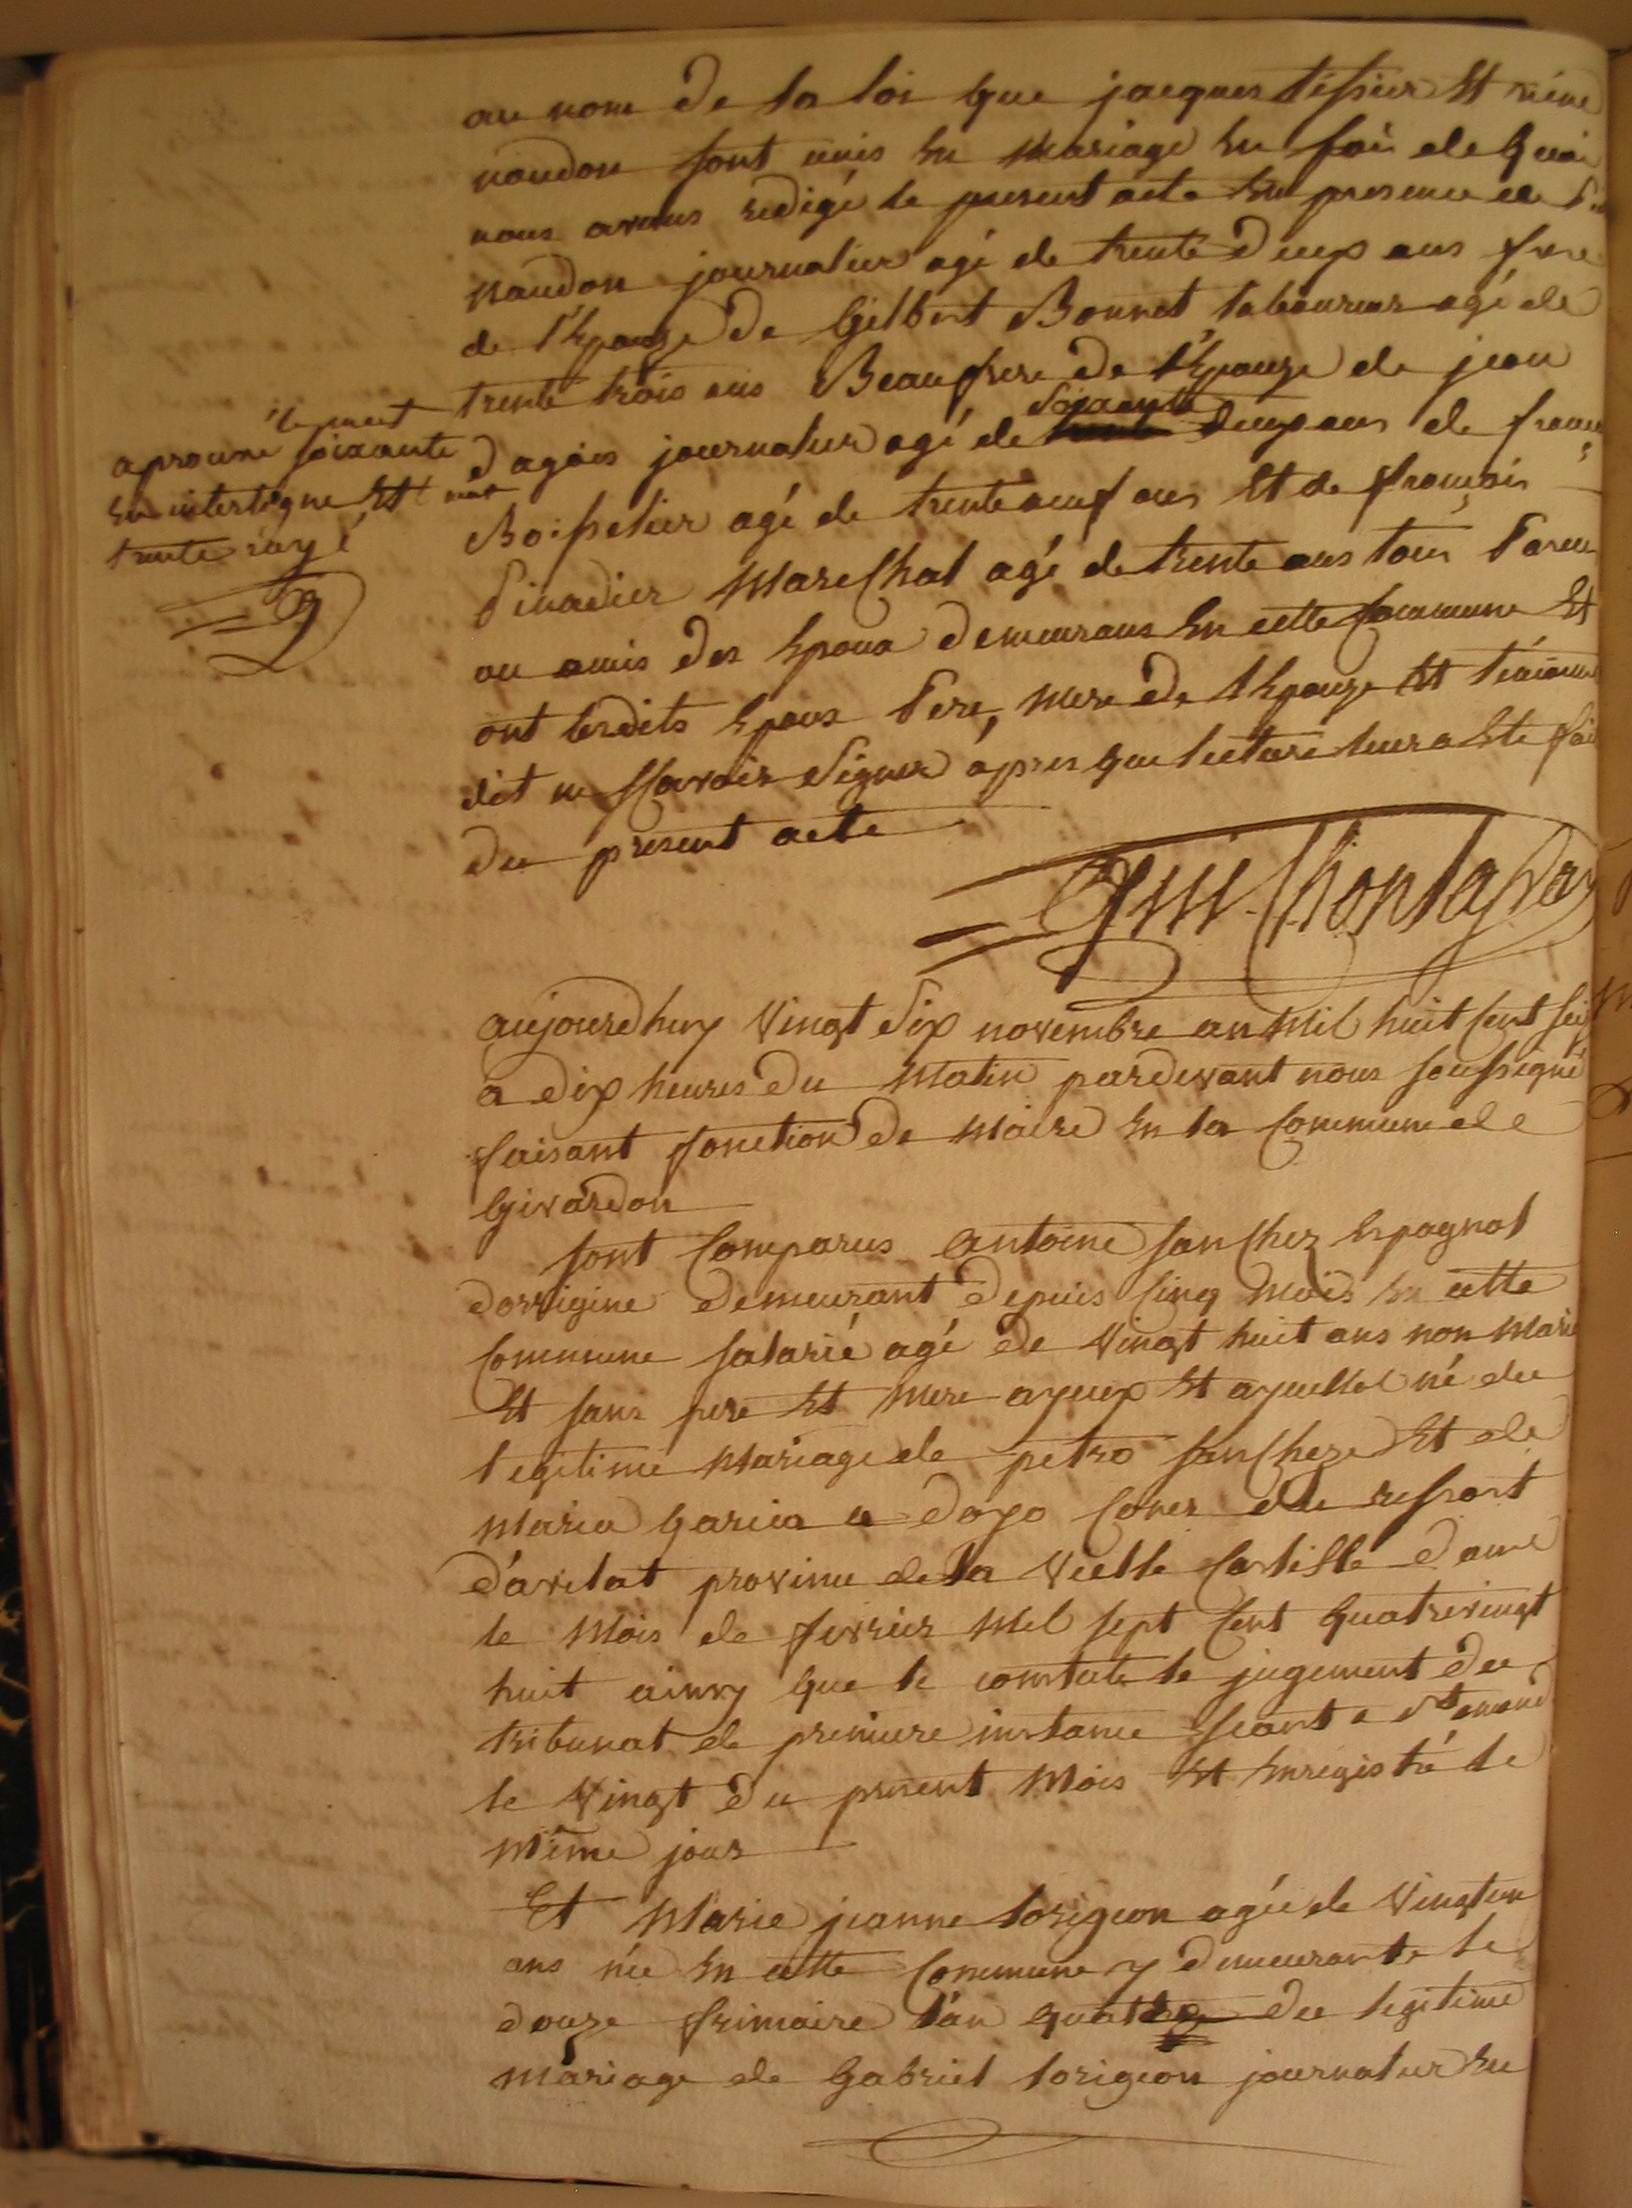 au nom de la loi que jacques tissier Et
naudon sont unis En Mariage En foi de quoi
nous avons redigé le present acte En presence de
naudon journalier agé de trente deux ans frere
de l'Epouze de Gilbert Bonnet laboureur agé de
trente trois ans Beaufrere de l'Epouze de jean
soixante
dagois journalier agé de deux ans de
Boisselier agé de trente neuf ans Et de françois
Pinadier Mareschal agé de trente ans tous
ou amis des Epoux demeurans En cette Commune Et
ont lesdits Epoux Pere, Mere de l'Epouze Et
dit ne scavoir signer apres que lecture leur a Eté
du present acte
le mot
aprouvé soixante
En interligne Et
trente rayé
aujourdhuy vingt six novembre an Mil huit Cent
a dix heures du Matin pardevant nous soussigné
faisant fonction de Maire En la Commune de
Givardon
sont Comparus antoine sanchez Espagnol
dorrigine demeurant depuis Cinq Mois En cette
Commune salarié agé de vingt huit ans non Marié
Et sans pere Et Mere ayeux Et ayeulles né du
legitime Mariage de petro Sancheze Et de
Maria garcia a du ressort
d'avilat province de la vielle Castille dans
le Mois de fevrier Mil sept Cent quatrevingt
huit ainsy que le constate le jugement du
tribunal de premiere instance seant a St amand
le vingt du present Mois Et Enregistré le
Même jour
Et Marie jeanne lorigeon agée de vingt un
ans née En cette Commune y demeurante le
douze frimaire l'an quatre du legitime
mariage de Gabriel lorigeon journalier En